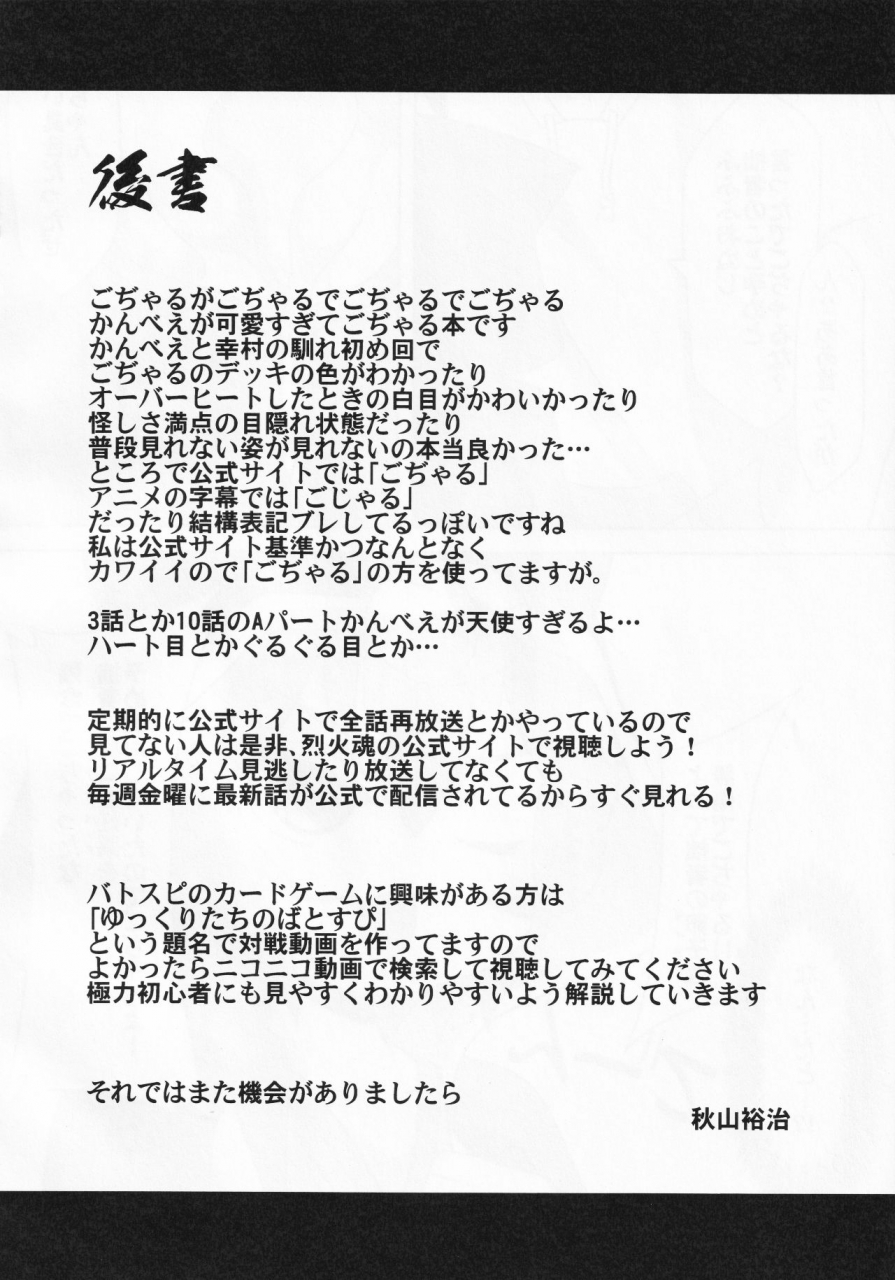 後書
ごぢゃるがごぢゃるでごぢゃるでごぢゃる
かんべえが可愛すぎてごぢゃる本です
かんべえと幸村の馴れ初め回で
ごぢゃるのデッキの色がわかったり
オーバーヒートしたときの白目がかわいかったり
怪しさ満点の目隠れ状態だったり
普段見れない姿が見れないの本当良かった…
ところで公式サイトでは「ごぢゃる」
アニメの字幕では「ごじゃる」
だったり結構表記ブレしてるっぽいですね
私は公式サイト基準かつなんとなく
カワイイので「ごぢゃる」の方を使ってますが。
3話とか10話のAパートかんべえが天使すぎるよ…
ハート目とかぐるぐる目とか…
定期的に公式サイトで全話再放送とかやっているので
見てない人は是非、烈火魂の公式サイトで視聴しよう！
リアルタイム見逃したり放送してなくても
毎週金曜に最新話が公式で配信されてるからすぐ見れる！
バトスピのカードゲームに興味がある方は
「ゆっくりたちのばとすぴ」
という題名で対戦動画を作ってますので
よかったらニコニコ動画で検索して視聴してみてください
極力初心者にも見やすくわかりやすいよう解説していきます
それではまた機会がありましたら
秋山裕治